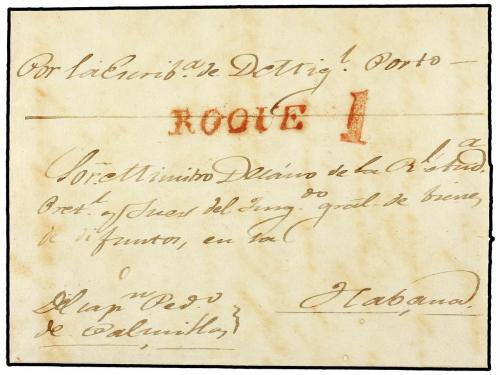 Por la Escrib.ª de D. Mig.l Porto
ROQUE 1
Sor. Ministro Decáno de la R.l Aud.ª
Pret.l y Juez del Juzg.do gral. de bienes
de difuntos, en la
Habana.
Del cap.n Ped.º
de Palmillas